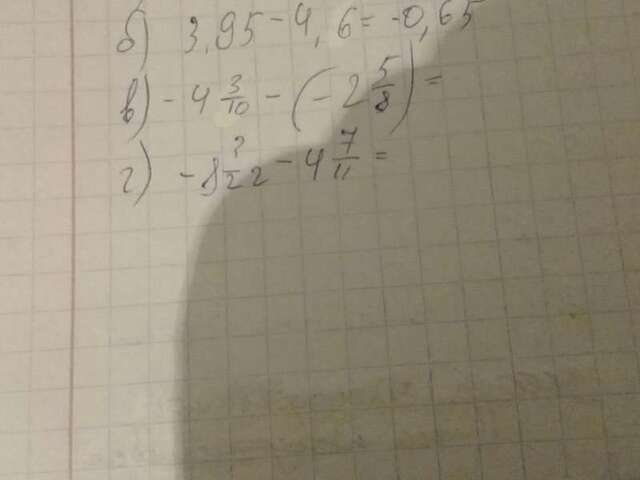 б) 3,95 - 4,6 = -0,65
в) - 4 3/10 - (- 2 5/8) =
г) - 8 ?/22 - 4 7/11 =